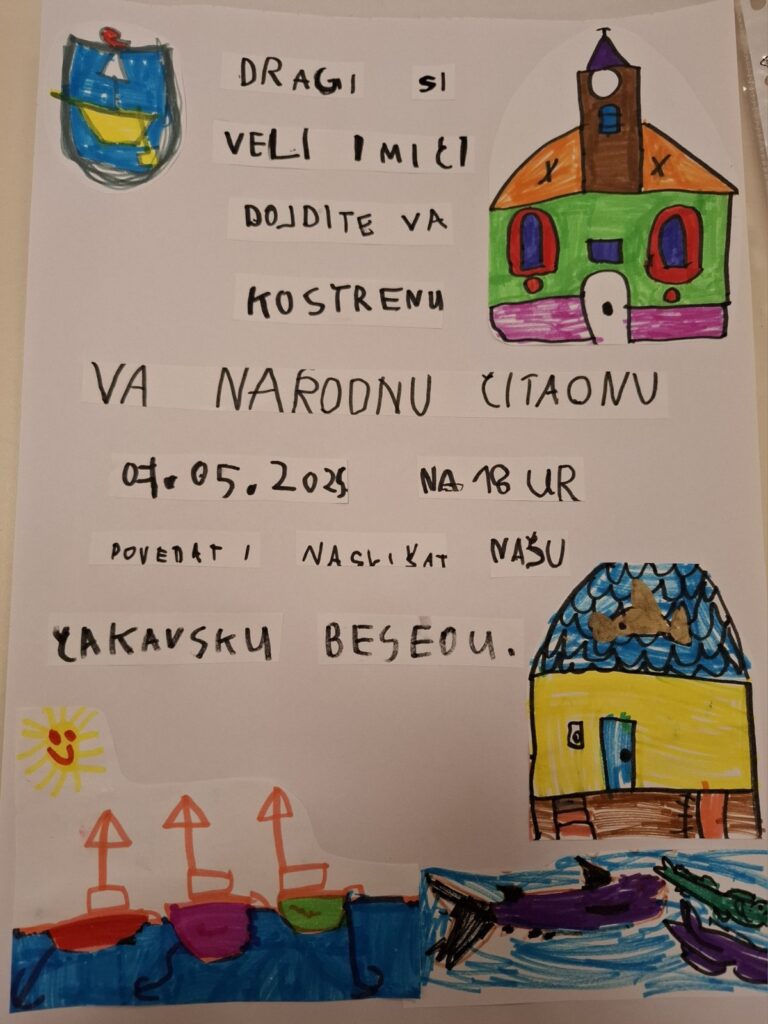 DRAGI SI
VELI I MIĆI
DOJDITE VA
KOSTRENU
VA NARODNU ČITAONU
07.05.2025 NA 18 UR
POVEDAT I NASLIŠAT NAŠU
ČAKAVSKU BESEDU.